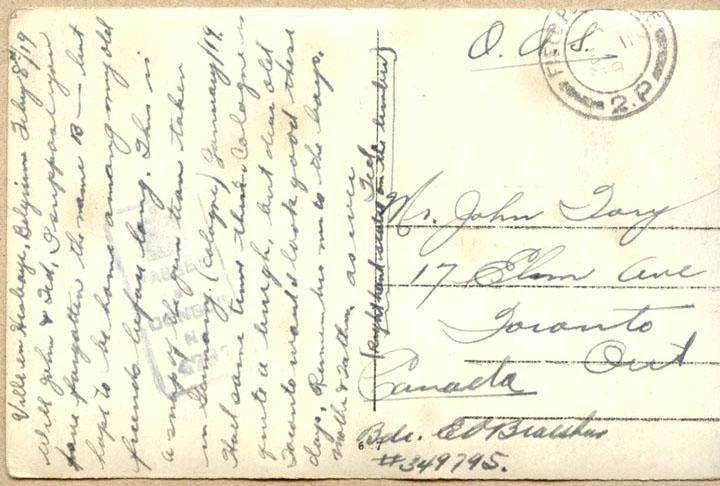 Ville en Hesbaye, Belgium Feby 8th/19
Well John & Ted, I suppose you
have forgotten the name B — but
hope to be home among my old
friends before long. This is
a snap of the gun team taken
in Germany. (Cologne) January/19.
Had some times there. Cologne is
quite a burgh, but dear old
Toronto would look good these
days. Remember me to the boys.
Mother & Father. as ever
Ted
(Right hand seated on the limber)
O. A. S.
FIELD
2.P
PASSED
CENSOR
Mr. John Tory
17 Elm Ave
Toronto
Ont
Canada
Bdr.
#349795.
6